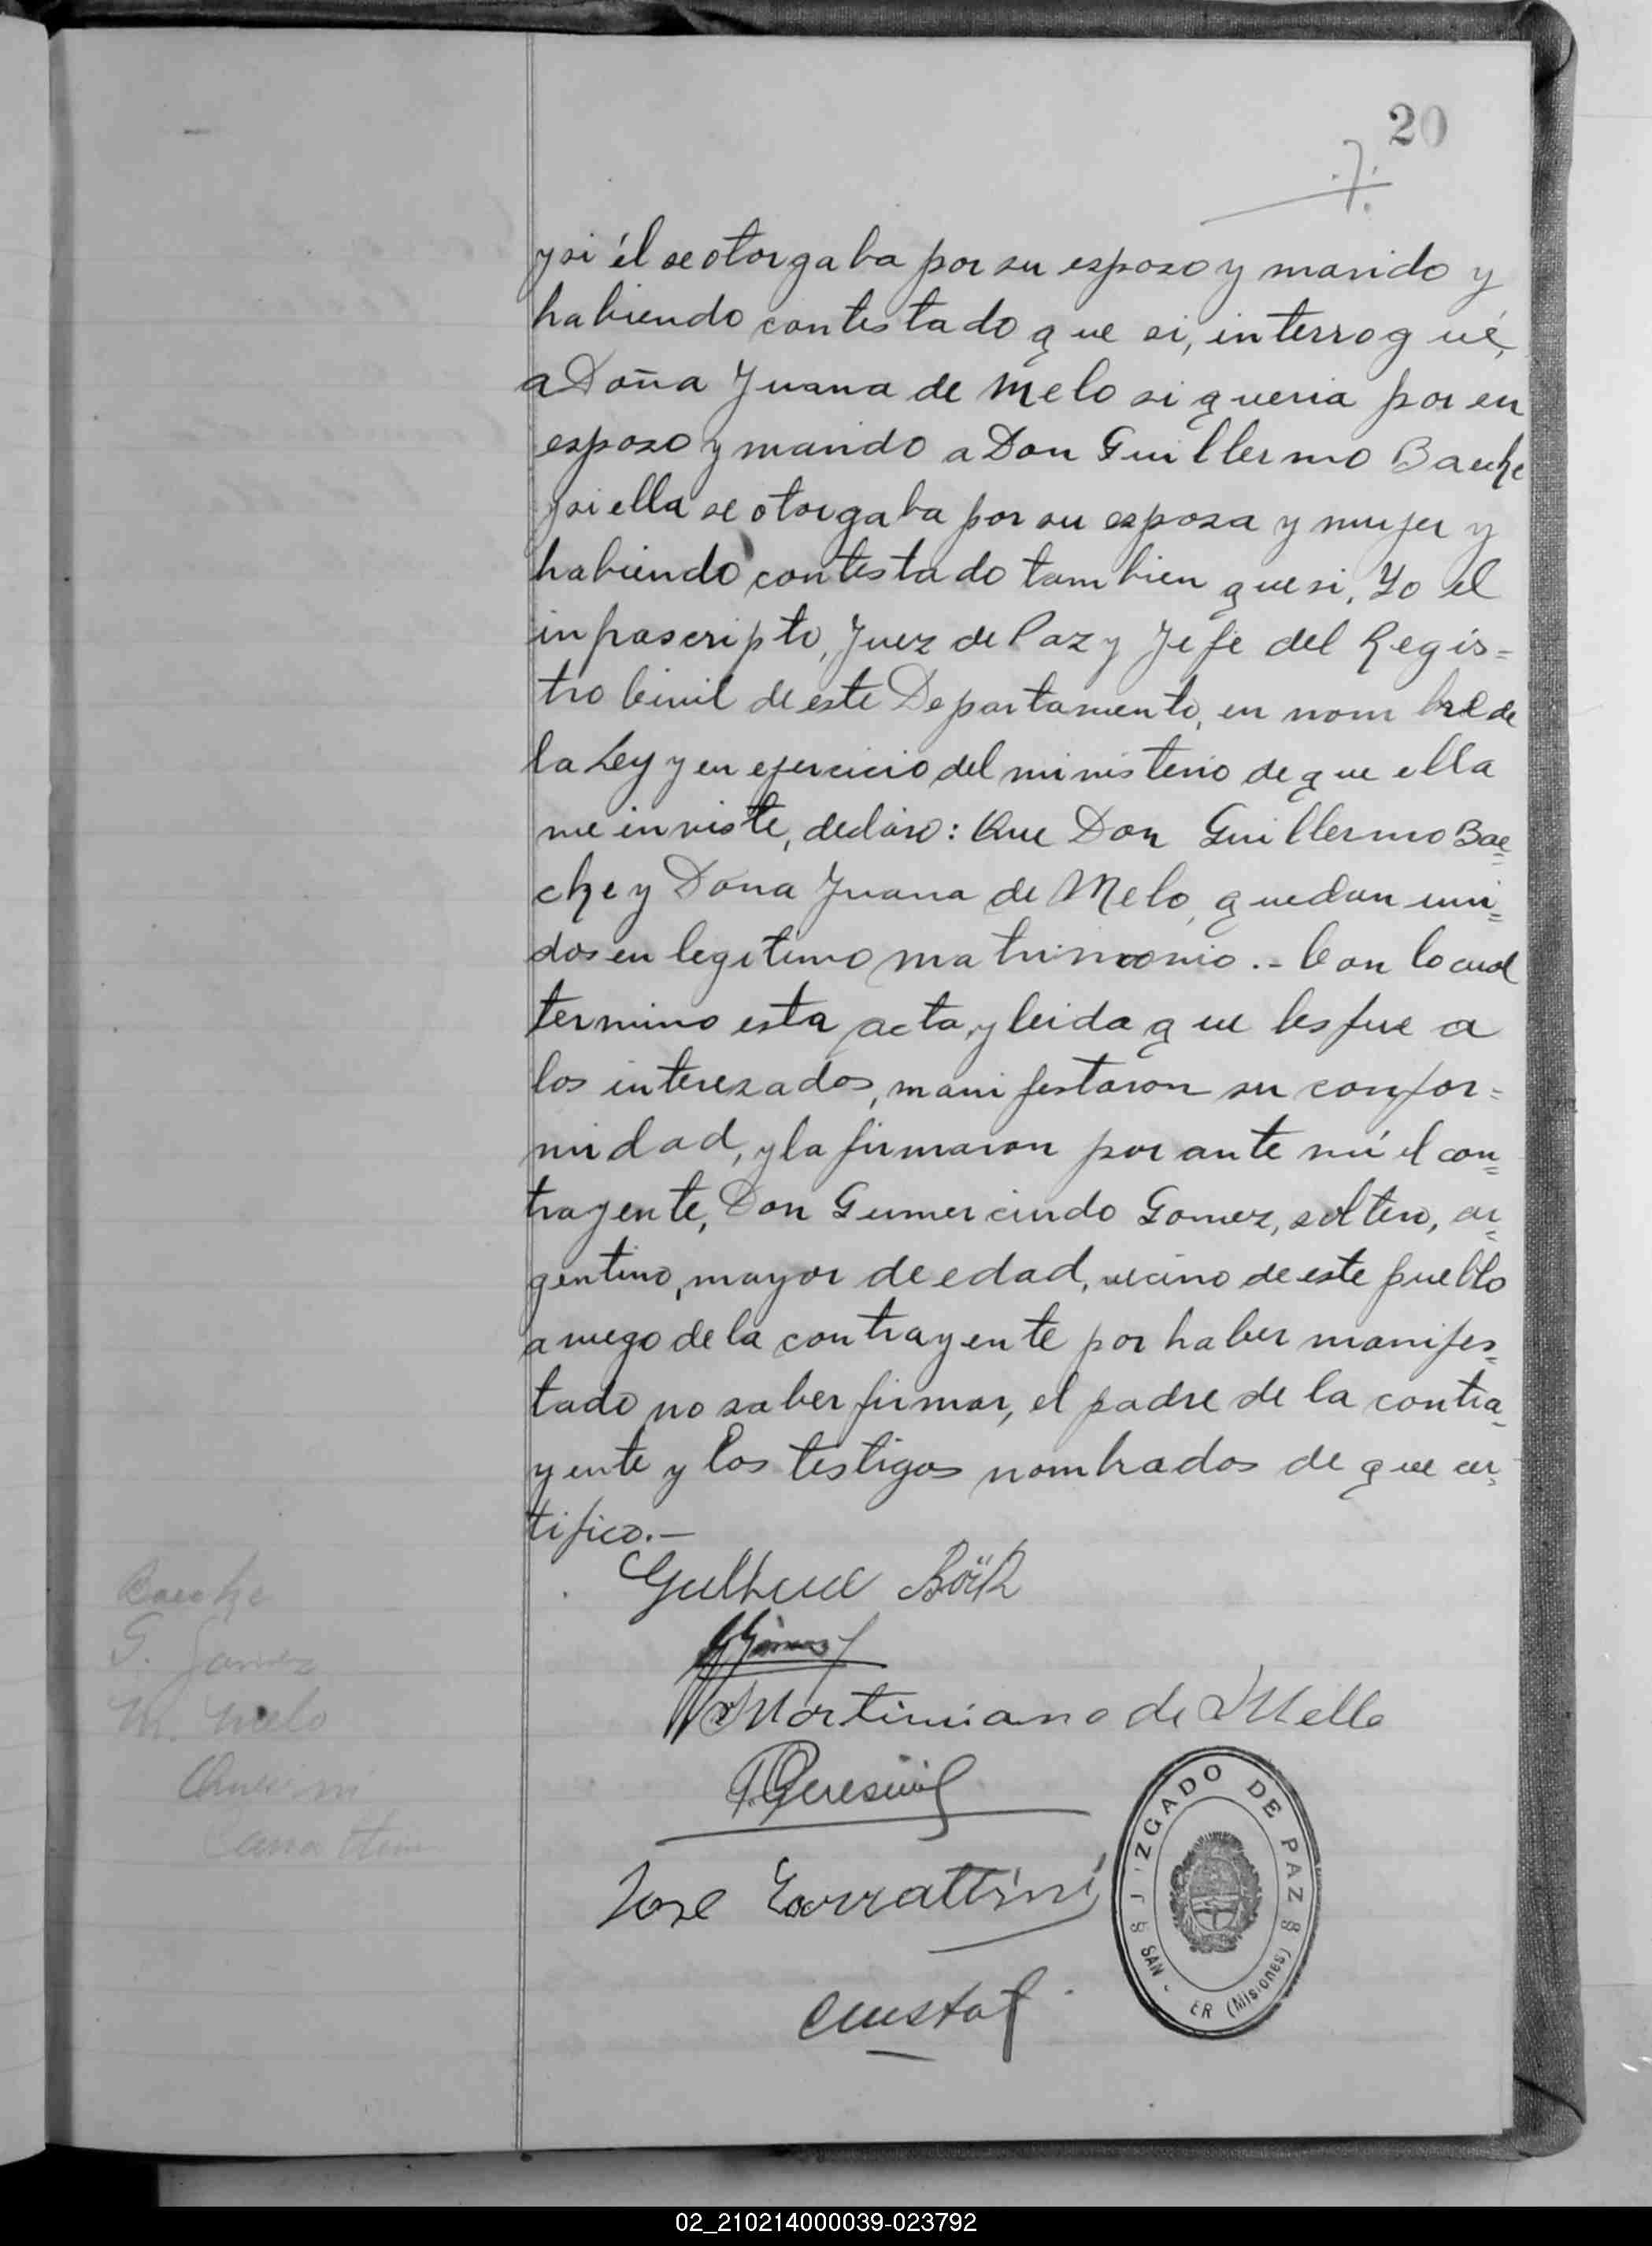 20
.7.
y si él se otorgaba por su esposo y marido y
habiendo contestado que si, interrogué,
a Doña Juana de Melo si queria por en
esposo y marido a Don Guillermo Baecke
y si ella se otorgaba por su esposa y mujer y
habiendo contestado tambien que si, Yo el
infrascripto, Juez de Paz y Jefe del Regis=
tro Civil de este Departamento, en nombre de
la Ley y en ejercicio del ministerio de que ella
me inviste, declaro: Que Don Guillermo Bae=
cke y Dona Juana de Melo, quedan uni=
dos en legitimo matrimonio.- Con lo cual
termino esta acta, y leida que les fue a
los interezados, manifestaron su confor=
midad, y la firmaron por ante mí el con=
trayente, Don Gumercindo Gomez, soltero, ar=
gentino, mayor de edad, vecino de este pueblo
a ruego de la contrayente por haber manifes=
tado no saber firmar, el padre de la contra=
yente y los testigos nombrados de que cer=
tifico.—
Baecke
G. Gomez
M. Melo
Martimiano de Mello
Jose Zarrattini
JUZGADO DE PAZ
SAN ER (Misiones)
02_210214000039-023792